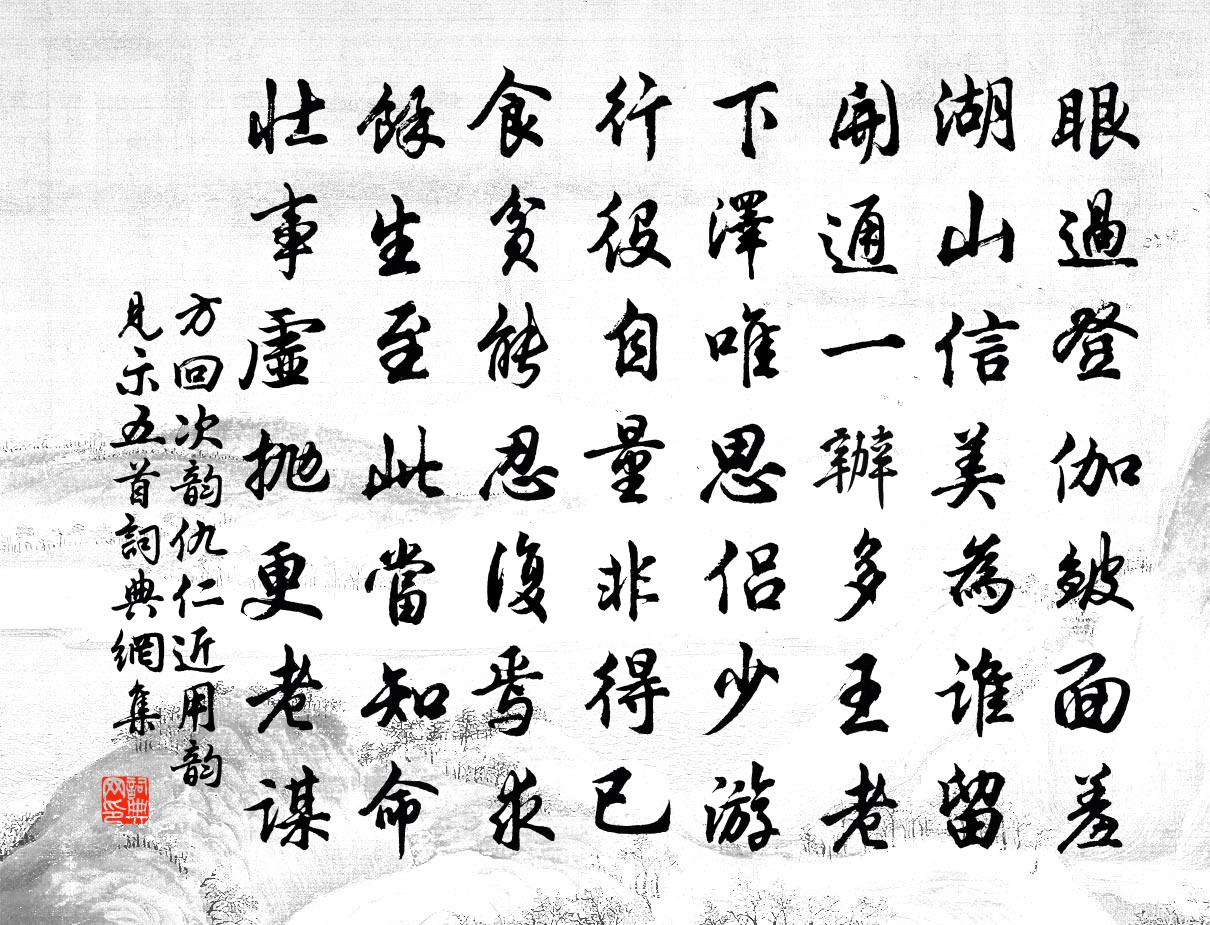 眼過登伽鈹面羞
湖山信美為誰留
開通一辦多王老
下澤唯思侶少游
行役自量非得已
食貧能忍復焉求
餘生至此當知命
壯事虛拋更老謀
方回次韵仇仁近用韵
見示五首詞典網集
詞典網印